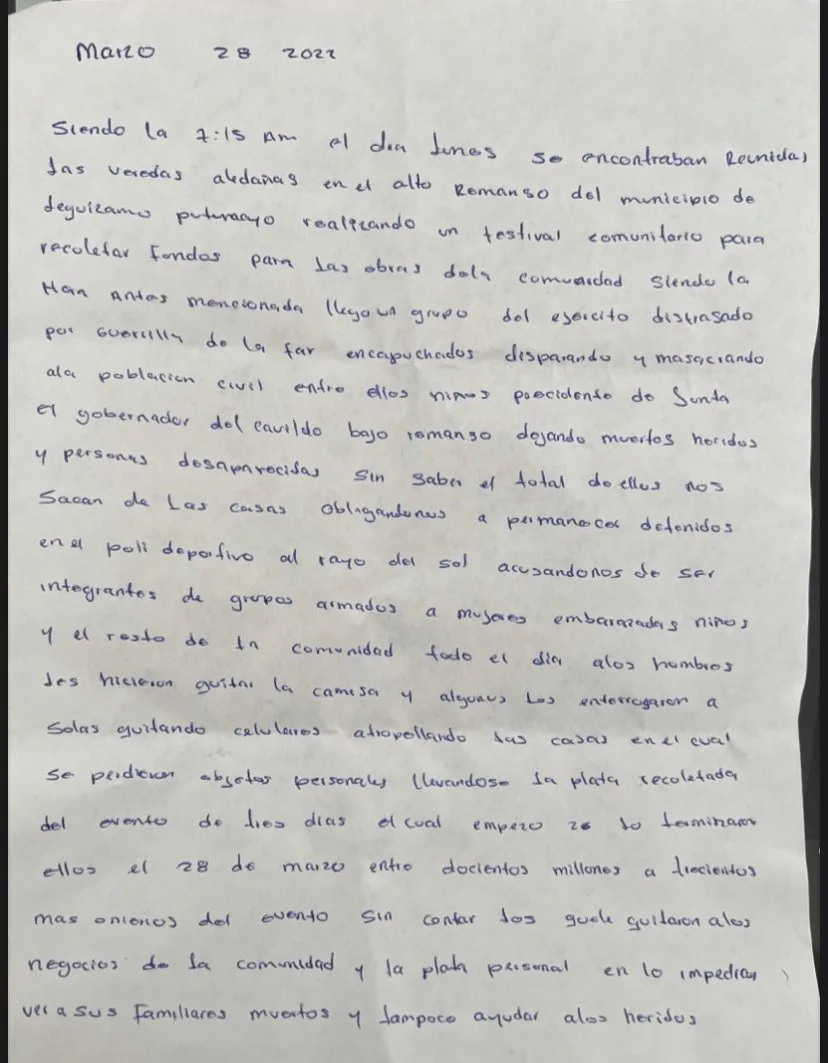 Marzo 28 2022
Siendo la 7:15 Am el dia lunes se encontraban Reunidas
las veredas aledañas en el alto Remanso del municipio de
leguizamo putumayo realizando un festival comunitario para
recoletar fondos para las obras dela comunidad siendo la
Hora antes mencionada llego un grupo del ejercito disfrasado
por guerrilla de la far encapuchados disparando y masacrando
ala poblacion civil entre ellos niños precidente de Junta
el gobernador del cavildo bajo remanso dejando muertos heridos
y personas desaparecidas sin saber el total de ellos nos
Sacan de las casas obligandonos a permanecer detenidos
en el poli deportivo al rayo del sol acusandonos de ser
integrantes de grupos armados a mujeres embarazadas niños
y el resto de la comunidad todo el dia alos hombres
les hicieron quitar la camisa y algunos los enterrogaron a
Solas quitando celulares atropellando las casas en el cual
se perdieron objetos personales llevandose la plata recoletada
del evento de tres dias el cual empezo 26 lo terminaron
ellos el 28 de marzo entre docientos millones a trecientos
mas omenos del evento sin contar los quele quitaron alos
negocios de la comunidad y la plata personal en lo impedian
ver a sus familiares muertos y tampoco ayudar alos heridos